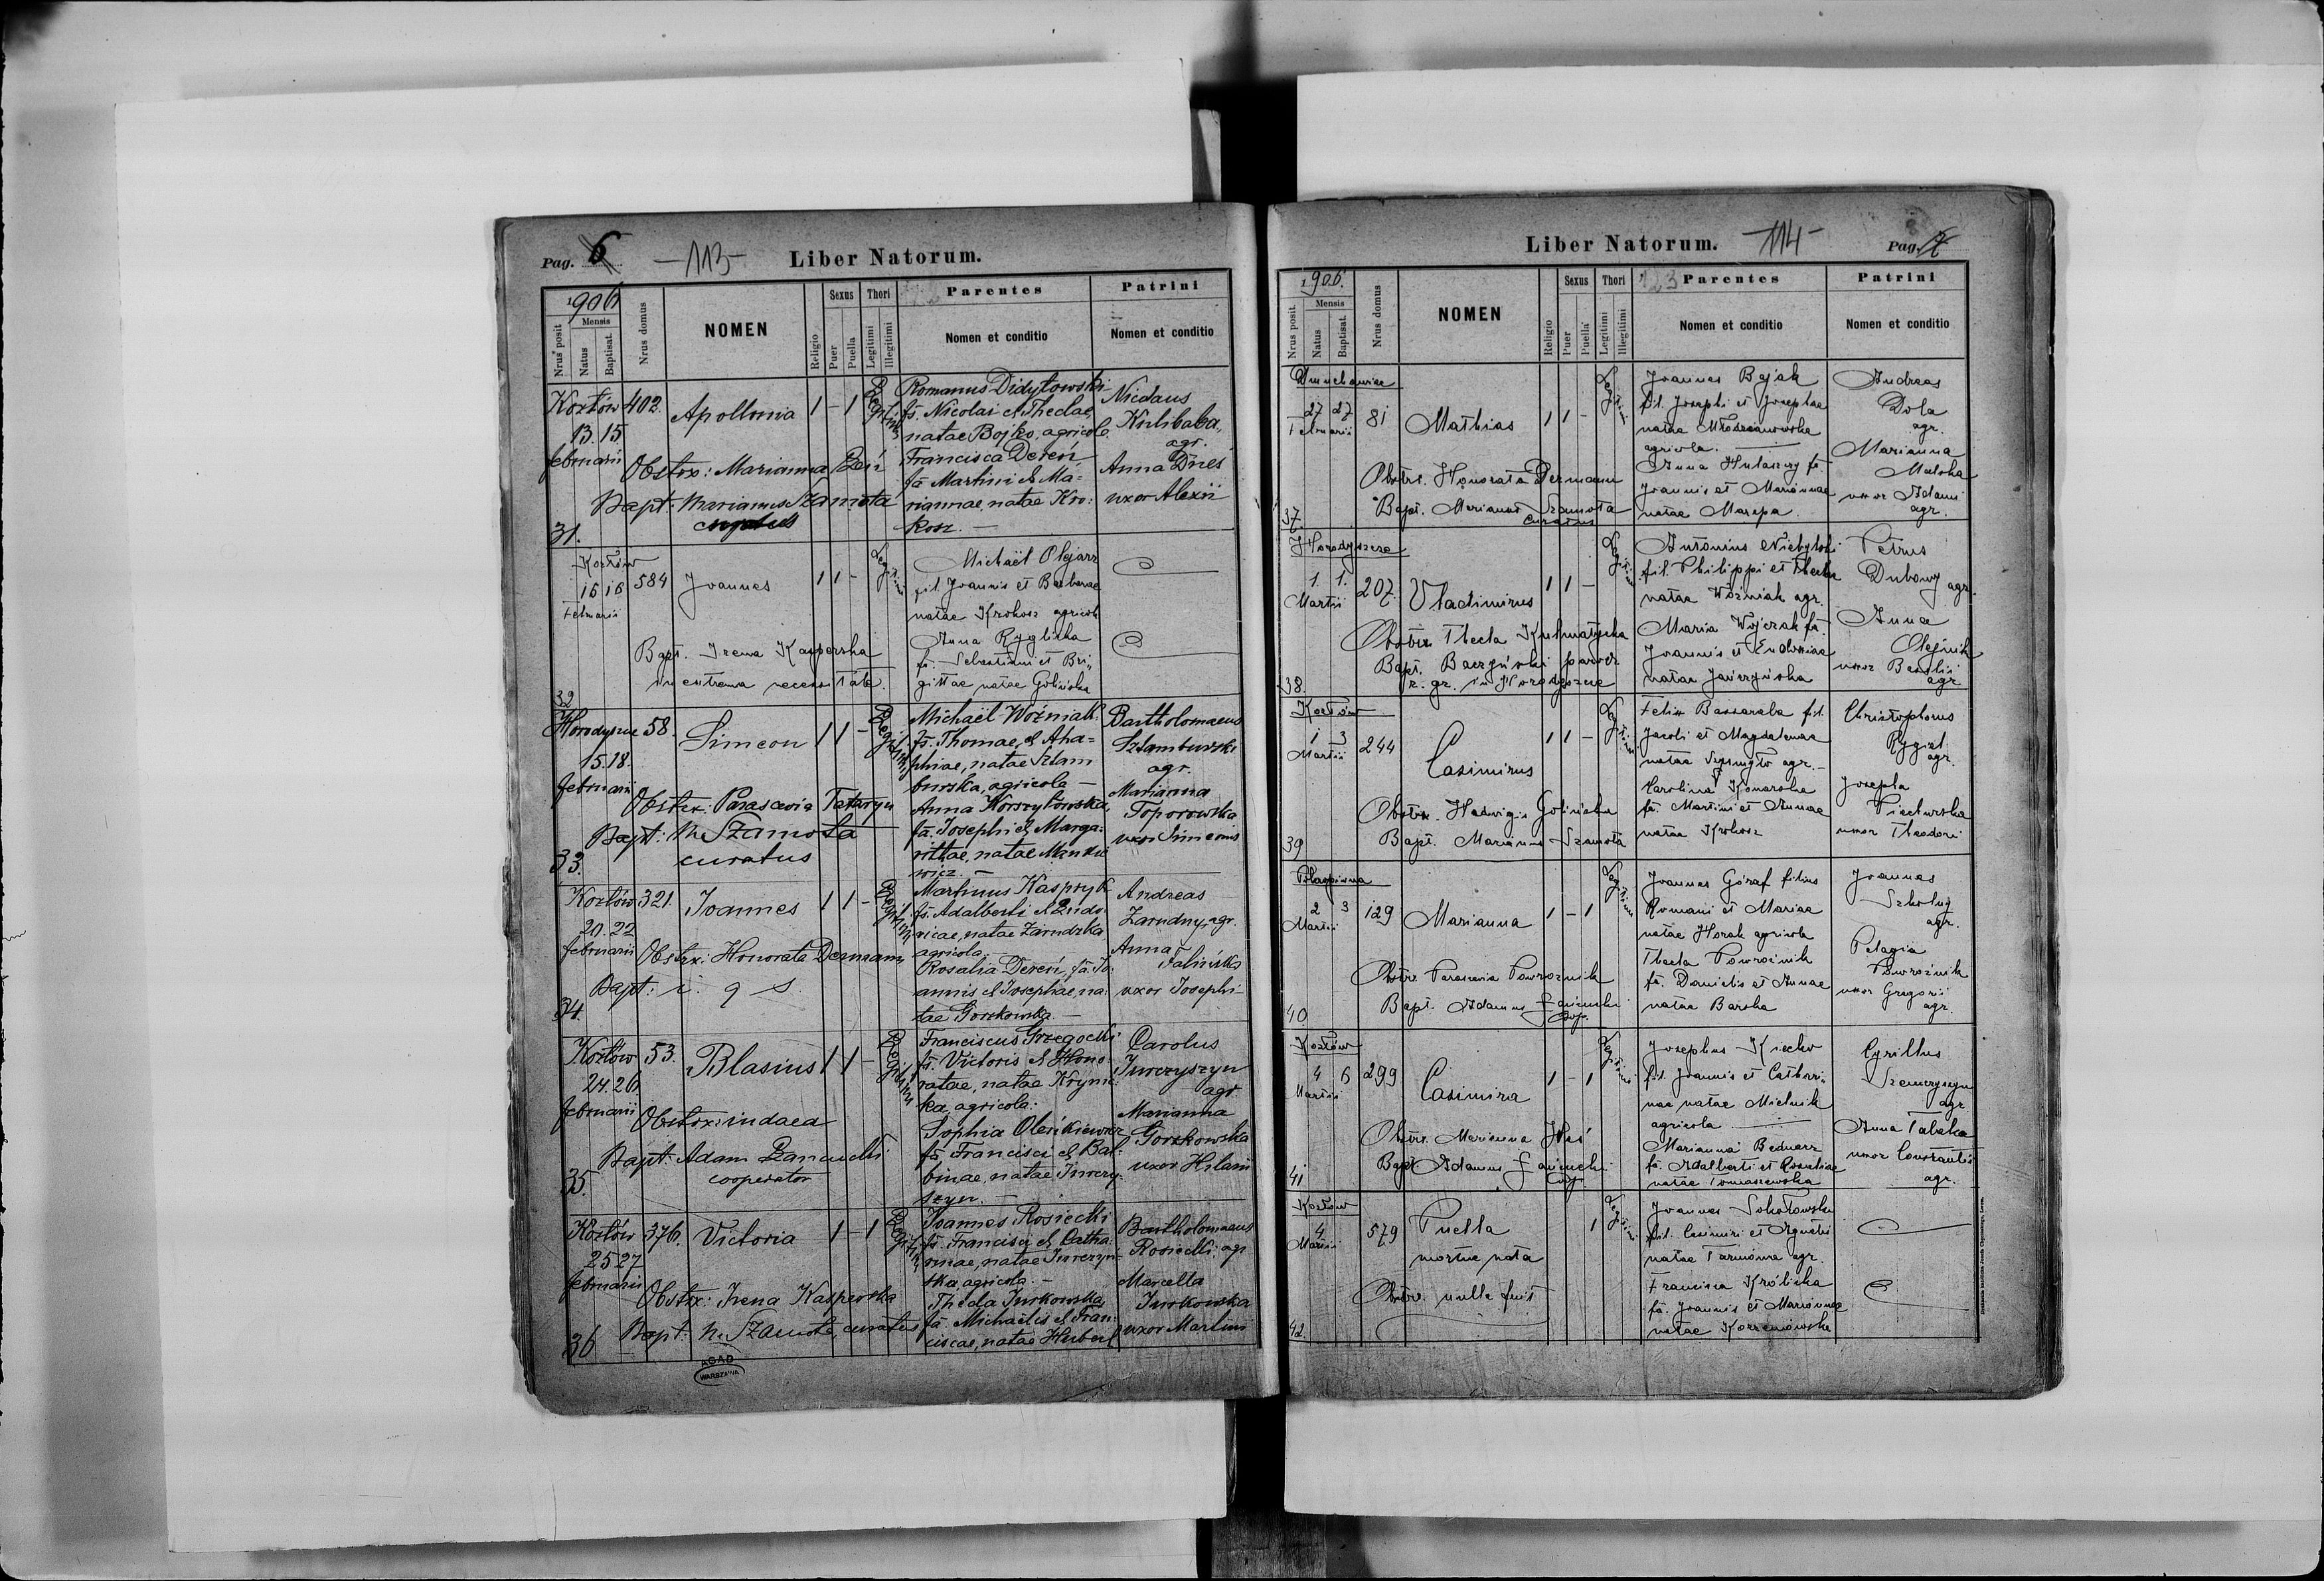 Pag. 6
-113-
Liber Natorum.
1906
Nrus posit
Mensis
Natus
Baptisat.
Nrus domus
NOMEN
Religio
Sexus
Puer
Puella
Thori
Legitimi
Illegitimi
Parentes
Nomen et conditio
Patrini
Nomen et conditio
Kozłów 402. Apollonia 1 - 1 Legitimi
13. 15.
februarii
Obstrx: Marianna
Bapt: Marianus Szamota
curatus
31.
Romanus Didyłowski
fs. Nicolai et Theclae,
natae Bojko, agricola
Francisca Dereń
fa Martini et Ma=
riannae, natae Kro:
kosz. —
Kulibaba,
agr.
Anna Dnes
uxor Alexii
Kozłów
16 16 584 Joannes 1 1 - Legitimi
Februarii
Bapt. Irena Kasperska
in extrema necessitate.
32
Michaël Olejarz
fil. Joannis et Barbarae
natae Krokosz agricola
Anna Ryglicka
fa. Sebastiani et Bri„
gittae natae Golińska
Horodyszcze 58. Simeon 1 1 - Legitimi
15. 18.
februarii
Obstrx: Parascevia Tataryn
Bapt: M. Szamota
curatus
33.
Michaël Woźniak
fs. Thomae, et Aha=
phiae, natae Sztam
burska, agricola —
Anna Korzyłowska,
fa. Josephi et Marga:
rittae, natae Mankie
wicz. —
Bartholomaeus
Sztamburski
agr.
Marianna
Toporowska
uxor Simeonis
Kozłów 321. Joannes 1 1 - Legitimi
20. 22.
februarii
Obstrx: Honorata Dermann
Bapt: i. q s.
34.
Martinus Kasprzyk
fs. Adalberti et Ludo
vicae, natae Zarudzka
agricola. —
Rosalia Dereń, fa. Jo:
annis et Josephae, na:
tae Gorzkowska. —
Andreas
Zarudny, agr.
Anna
Falińska
uxor Josephi
Kozłów 53. Blasius 1 1 - Legitimi
24. 26.
februarii
Obstrx: indaea
Bapt: Adam
cooperator
35.
Franciscus Grzegocki
fs. Victoris et Hono:
ratae, natae Kryni:
ka, agricola:
Sophia Oleśkiewicz
fa Francisci et Bal:
binae, natae Jurczy:
szyn. —
Carolus
Jurczyszyn
agr
Marianna
Gorzkowska
uxor Hilarii
Kozłów 376. Victoria 1 - 1 Legitimi
25 27
februarii
Obstrx: Irena Kasperska
Bapt: M. Szamota, curatus
36
Joannes Rosiecki
fs. Francisci et Catha:
rinae, natae Jurczyń=
ska agricola. —
Thecla Jurkowska
fa Michaëlis et Fran:
ciscae, natae Hubert
Bartholomaeus
Rosiecki: agr
Marcella
Jurkowska
uxor Martini
AGAD
WARSZAWA
Liber Natorum.
-114-
Pag. 7
1906.
Nrus posit.
Mensis
Natus
Baptisat.
Nrus domus
NOMEN
Religio
Sexus
Puer
Puella
Thori
Legitimi
Illegitimi
Parentes
Nomen et conditio
Patrini
Nomen et conditio
27 27 81 Mathias 1 1 - Legitimi
Februarii
Obstr. Honorata Dermann
Bapt. Marianus Szamota
curatus
37.
Joannes Bejak
fil. Josephi et Josephae
natae Młodzianowska
agricola.
Anna Hulaszczy fa.
Joannis et Mariannae
natae Mazepa.
Andreas
Dola
agr.
Marianna
Malska
uxor Adami
agr.
Horodyszcze
1. 1. 207. Vladimirus 1 1 - Legitimi
Martii
Obstrx Thecla
Bapt. Baczyński paroch
r. gr. in Horodyszcze
38.
Antonius Niebylski
fil. Philippi et Theclae
natae Woźniak agr.
Maria Wojczak fa.
Joannis et Eudoxiae
natae
Petrus
Dubowy agr.
Anna
Olejnik
uxor Basilii
agr
Kozłów
1 3 244 Casimirus 1 1 - Legitimi
Martii
Obstrx. Hedwigis Golińska
Bapt. Marianus Szamota
39
Felix Bassaraba fil.
Jacobi et Magdalenae
natae agr. -
Carolina Konarska
fa. Martini et Annae
natae Krokosz
Christophorus
Rygiel
agr.
Josepha
Pieturska
uxor Theodori
2 3 129 Marianna 1 - 1 Legitimi
Martii
Obstr. Parascevia Powroźnik
Bapt. Adamus
Coop.
40.
Joannes Góraf filius
Romani et Mariae
natae Horak agricola
Thecla Powroźnik
fa. Danielis et Annae
natae Barska
Joannes
Szkolny
agr.
Pelagia
Powroźnik
uxor Gregorii
agr.
Kozłów
4 6 299 Casimira 1 - 1 Legitimi
Martii
Obstr. Marianna
Bapt. Adamus
Coop.
41
Josephus Kiecko
fil. Joannis et Cathari„
nae natae Mielnik
agricola
Marianna Bednarz
fa. Adalberti et Rosaliae
natae Tomaszewska
Cyrillus
Szemeryszyn
agr
Anna Tabaka
uxor Constantii
agr.
Kozłów
4 579 Puella 1 Legitimi
Martii
mortue nata
Obstr. nulla fuit
42.
Joannes Sokołowski
fil. Casimiri et Agnetis
natae agr.
Francisca Królicka
fa. Joannis et Mariannae
natae